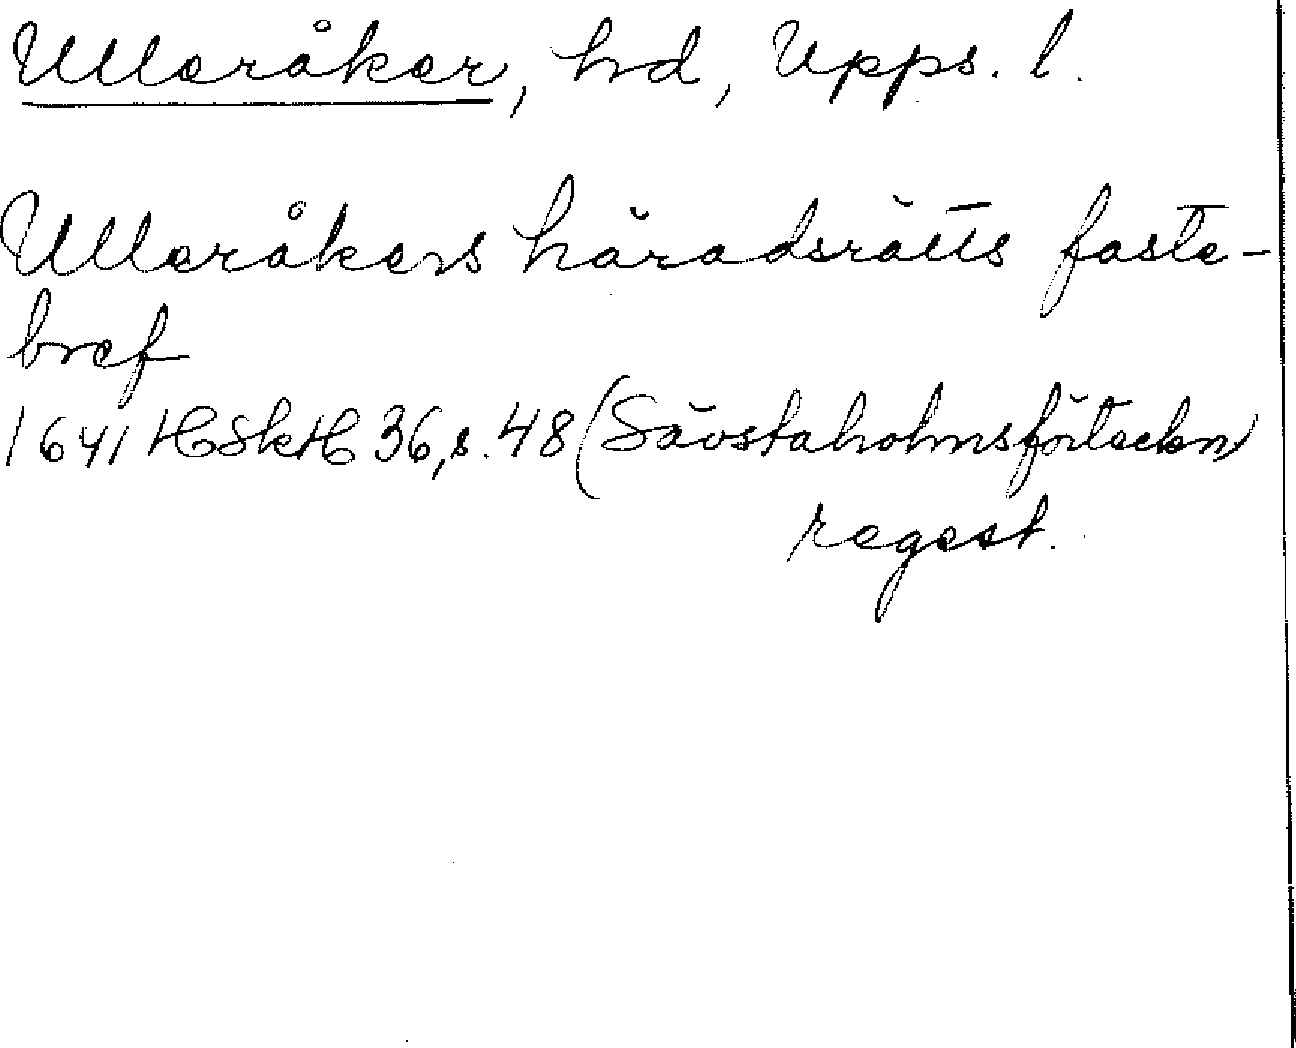 Ulleråker, hd, Upps. l.
Ulleråkers häradsrätts faste-
bref
1641 HSkH 36, s. 48 (Sävstaholmsförteckn)
regest.